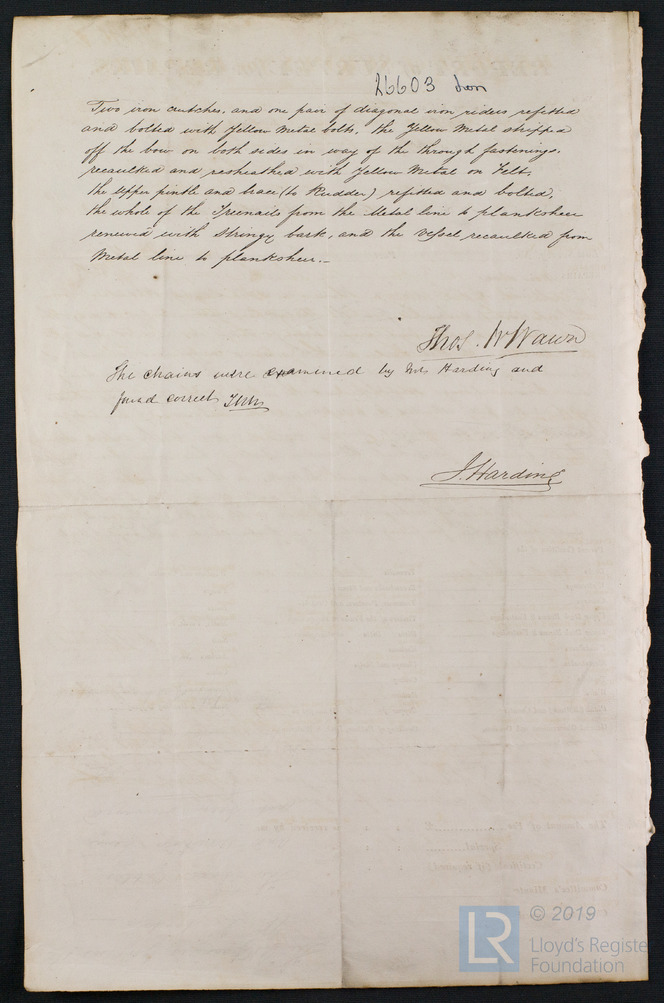 26603 Iron
Two iron crutches, and one pair of diagonal iron riders refitted
and bolted with Yellow Metal bolts, the Yellow Metal stripped
off the bow on both sides in way of the through fastenings,
recaulked and resheathed with Yellow Metal on Felt,
the upper pintle and brace (to Rudder) refitted and bolted,
the whole of the Treenails from the Metal line to planksheer
renewed with Stringy bark, and the Vessel recaulked from
Metal line to planksheer.—
Thos. W Wawn
The chains were examined by Mr Harding and
found correct TWW
J. Harding
© 2019
LR
Lloyd's Registe
Foundation